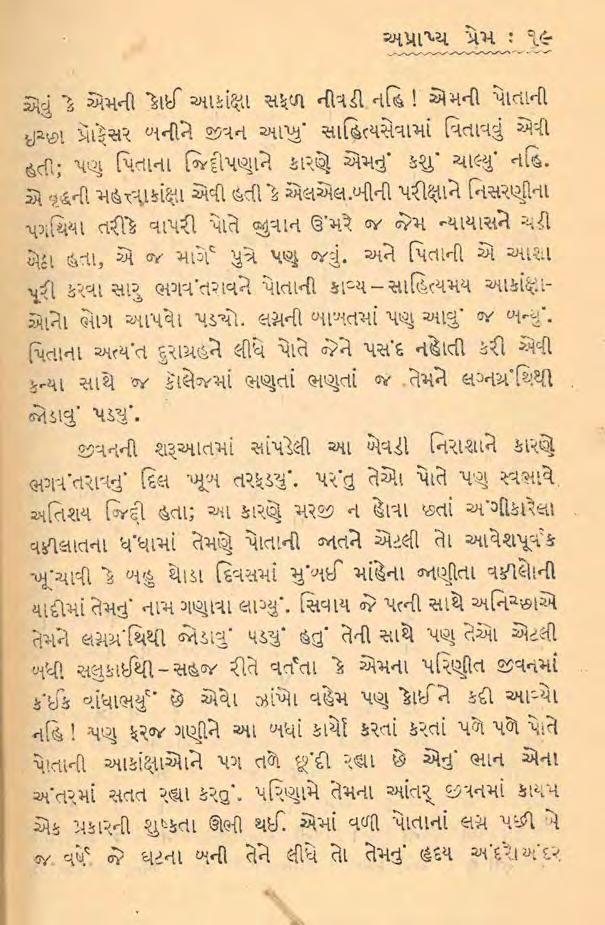 અપ્રાપ્ય પ્રેમ : ૧૯
એવું કે એમની કોઈ આકાંક્ષા સફળ નીવડી નહિ ! એમની પોતાની
ઇચ્છા પ્રોફેસર બનીને જીવન આખું સાહિત્યસેવામાં વિતાવવું એવી
હતી; પણ પિતાના જિદ્દીપણાને કારણે એમનું કશું ચાલ્યું નહિ.
એ વૃદ્ધની મહત્ત્વાકાંક્ષા એવી હતી કે એલએલ.બીની પરીક્ષાને નિસરણીના
પગથિયા તરીકે વાપરી પોતે જુવાન ઉંમરે જ જેમ ન્યાયાસને ચડી
બેઠા હતા, એ જ માર્ગે પુત્રે પણ જવું. અને પિતાની એ આશા
પૂરી કરવા સારુ ભગવંતરાવને પોતાની કાવ્ય – સાહિત્યમય આકાંક્ષા-
ઓનો ભોગ આપવો પડ્યો. લગ્નની બાબતમાં પણ આવું જ બન્યું.
પિતાના અત્યંત દુરાગ્રહને લીધે પોતે જેને પસંદ નહોતી કરી એવી
કન્યા સાથે જ કૉલેજમાં ભણતાં ભણતાં જ તેમને લગ્નગ્રંથિથી
જોડાવું પડ્યું.
જીવનની શરૂઆતમાં સાંપડેલી આ બેવડી નિરાશાને કારણે
ભગવંતરાવનું દિલ ખૂબ તરફડ્યું. પરંતુ તેઓ પોતે પણ સ્વભાવે
અતિશય જિદ્દી હતા; આ કારણે મરજી ન હોવા છતાં અંગીકારેલા
વકીલાતના ધંધામાં તેમણે પોતાની જાતને એટલી તો આવેશપૂર્વક
ખૂંચાવી કે બહુ થોડા દિવસમાં મુંબઈ માંહેના જાણીતા વકીલોની
યાદીમાં તેમનું નામ ગણાવા લાગ્યું. સિવાય જે પત્ની સાથે અનિચ્છાએ
તેમને લગ્નગ્રંથિથી જોડાવું પડ્યું હતું તેની સાથે પણ તેઓ એટલી
બધી સલુકાઈથી – સહજ રીતે વર્તતા કે એમના પરિણીત જીવનમાં
કંઈક વાંધાભર્યું છે એવો ઝાંખો વહેમ પણ કોઈને કદી આવ્યો
નહિ ! પણ ફરજ ગણીને આ બધાં કાર્યો કરતાં કરતાં પળે પળે પોતે
પોતાની આકાંક્ષાઓને પગ તળે છૂંદી રહ્યા છે એનું ભાન એના
અંતરમાં સતત રહ્યા કરતું. પરિણામે તેમના આંતર્ જીવનમાં કાયમ
એક પ્રકારની શુષ્કતા ઊભી થઈ. એમાં વળી પોતાનાં લગ્ન પછી બે
જ વર્ષે જે ઘટના બની તેને લીધે તો તેમનું હૃદય અંદરોઅંદર